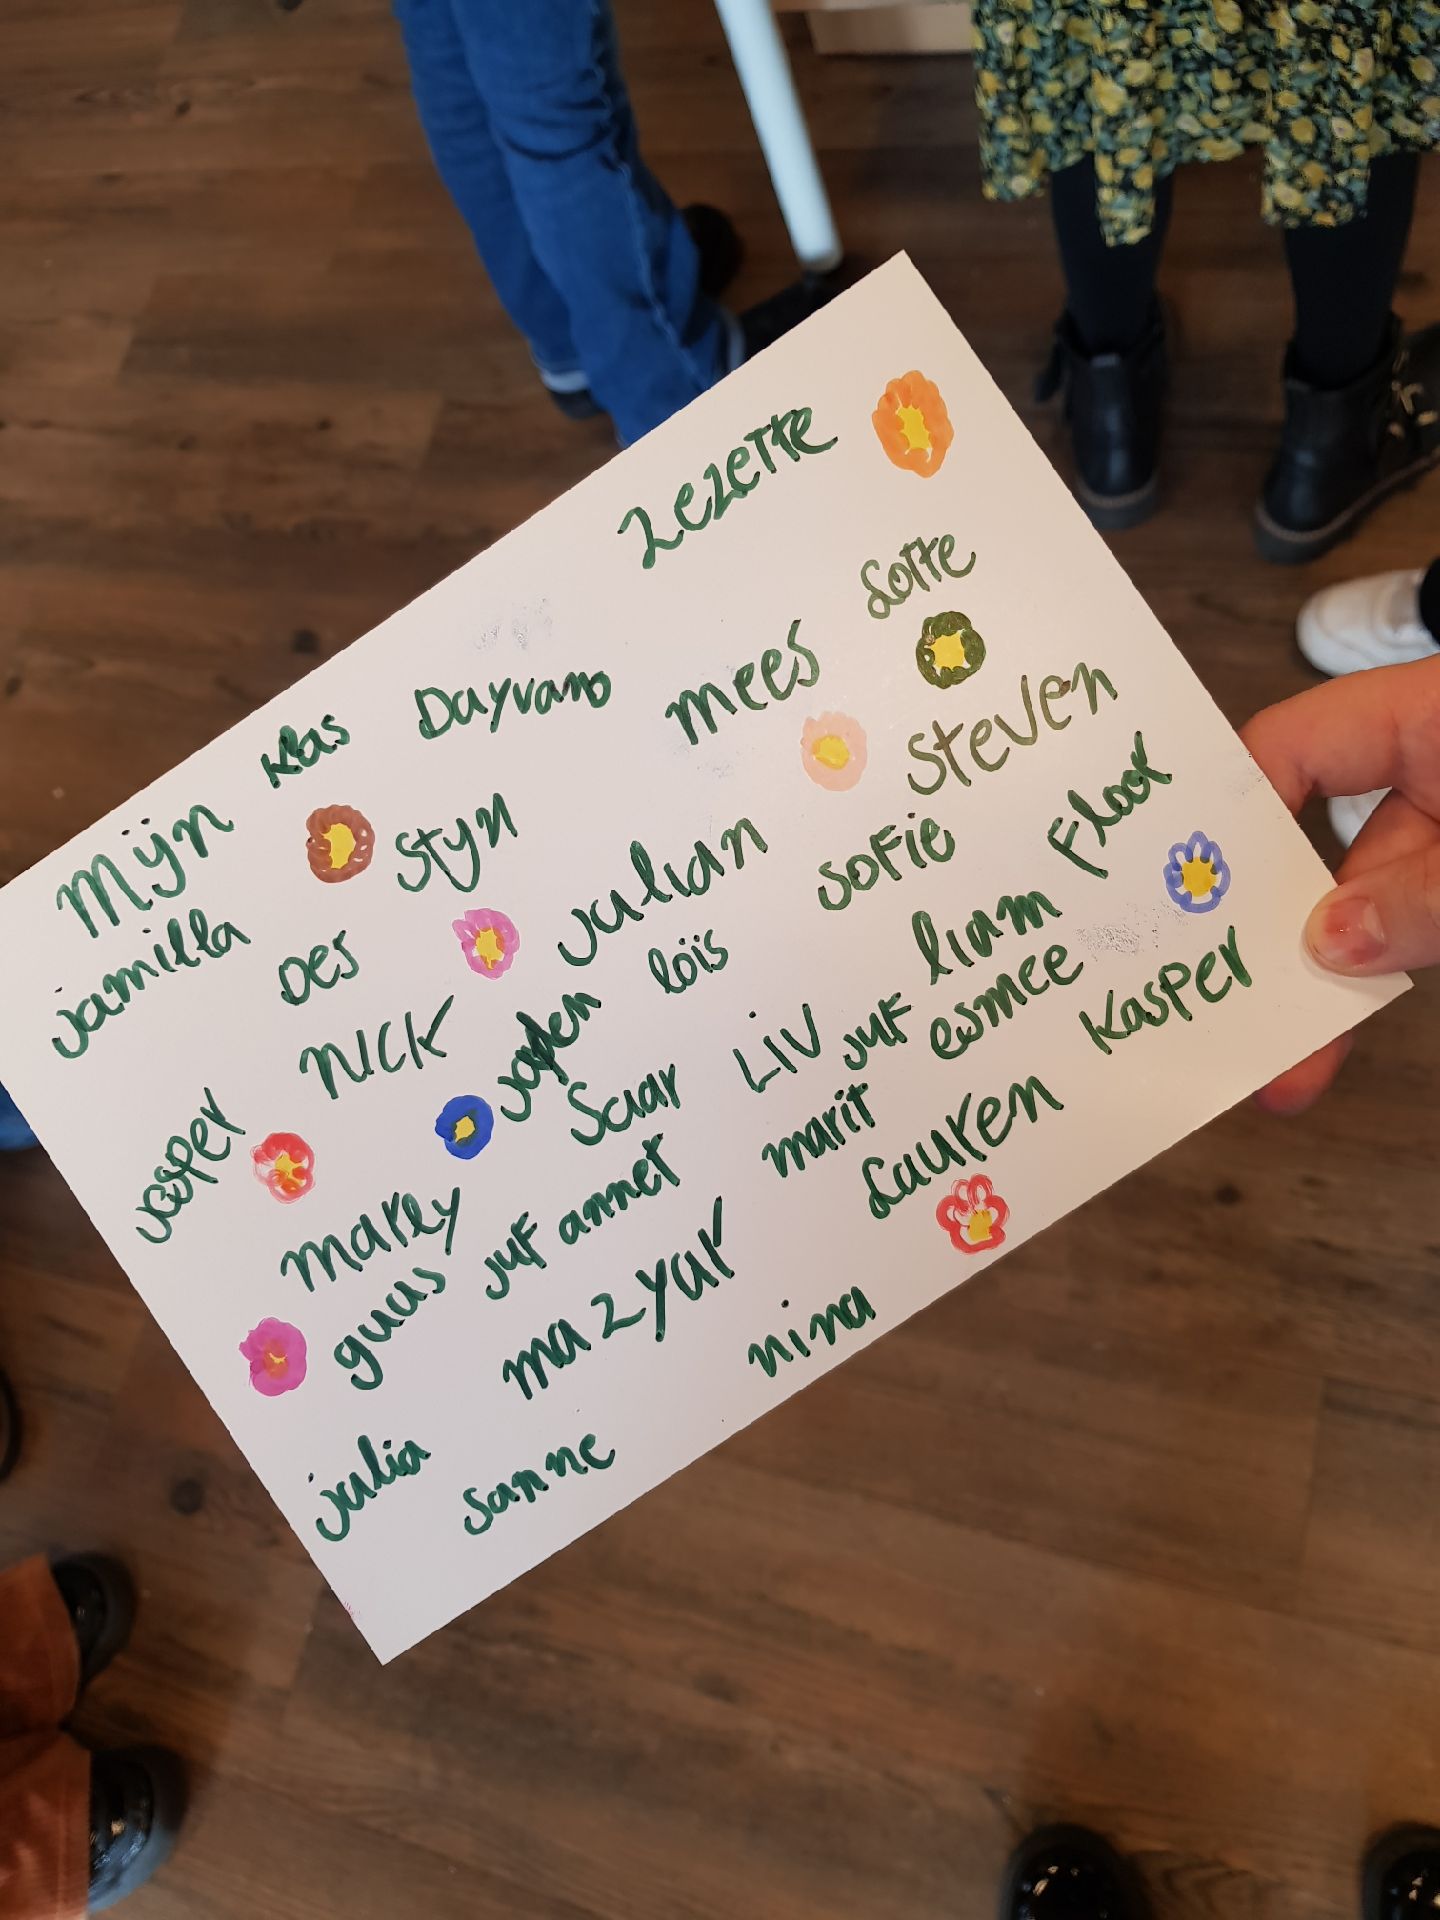 Zezette
mijn klas Dayvano mees Lotte
jamilla Des Styn Julian Sofie Steven
Nick Jayden loïs liam Floor
Jesper Saar Liv juf esmee Kasper
marly juf annet marit Lauren
guus mazyar nina
julia sanne